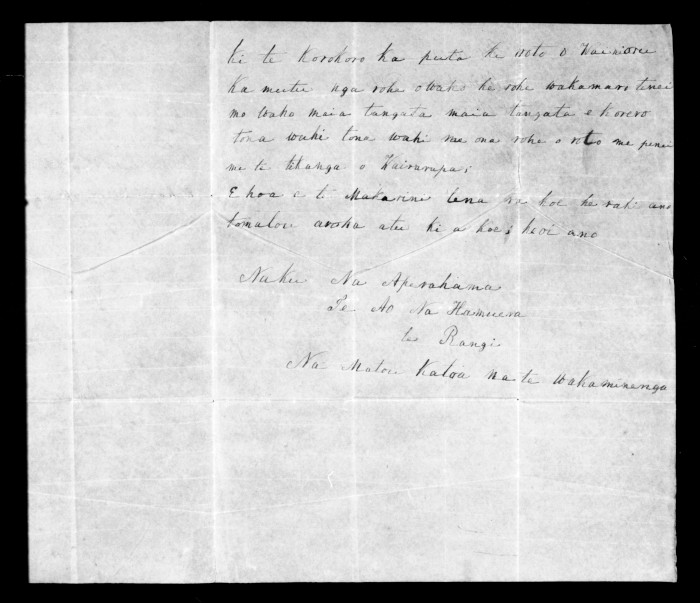 ki te Korokoro ka puta ki roto o Waimoru
ka mutu nga rohe o waho he rohe wakamaro tenei
mo waho maia tangata maia tangata e korero
tona wahi tona wahi me ona rohe o roto me penei
me te tikanga o Wairarapa;
E hoa e te Makarini tena ra koe he nahi ano
to matou aroha atu ki a koe; heoi ano
Naku Na Aperahama
Te Ao Na Hamuera
te Rangi
Na Matou Katoa na te wakaminenga